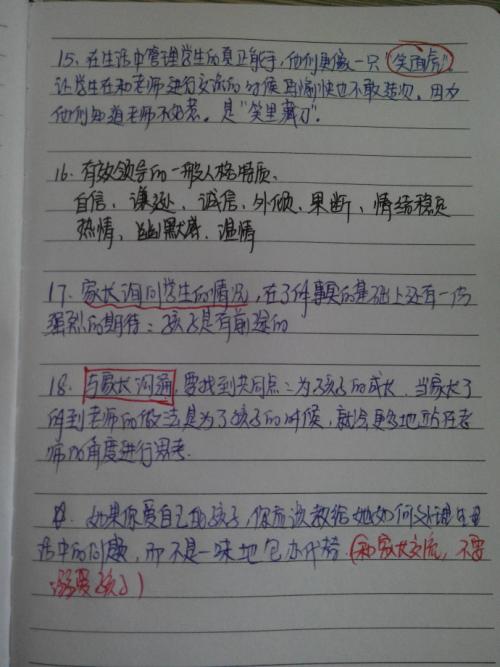 15、在生活中管理学生的真正能手,他们更像一只"笑面虎",
让学生在和老师进行交流的时候再愉快也不敢造次。因为
他们知道老师不好惹。是"笑里藏刀"。
16、有效领导的一般人格特质、
自信、谦逊、诚信、外倾、果断、情绪稳定
热情、幽默感、温情
17、家长询问学生的情况,在了解事实的基础上还有一份
强烈的期待:孩子是有前途的
18、与家长沟通,要找到共同点:为了孩子的成长.当家长了
解到老师的做法是为了孩子的时候,就会更多地站在老
师的角度进行思考.
如果你爱自己的孩子,你应该教给她如何处理生
活中的问题,而不是一味地包办代替(和家长交流,不要
溺爱孩子)